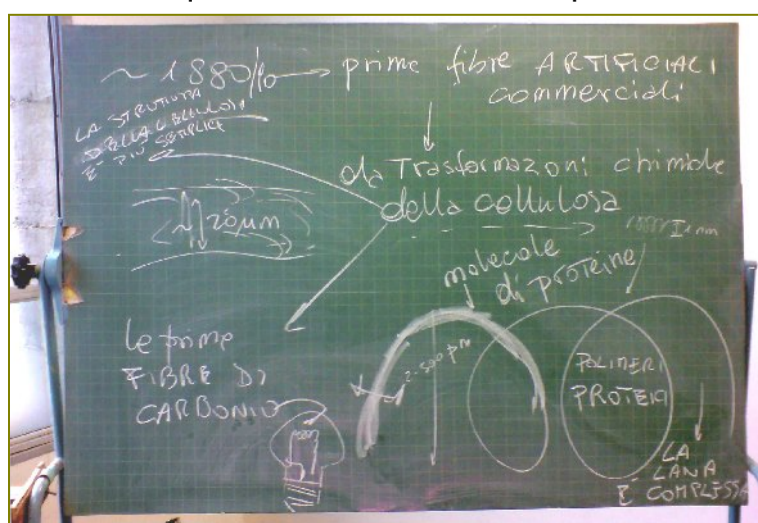 ~ 1880/10 → prime fibre ARTIFICIALI
commerciali
LA STRUTTURA
DELLA CELLULOSA
È PIÙ SEMPLICE
da Trasformazoni chimiche
della cellulosa
~ 20 μm
molecole
di proteine
le prime
FIBRE DI
CARBONIO
POLIMERI
PROTEICI
LA
LANA
È COMPLESSA